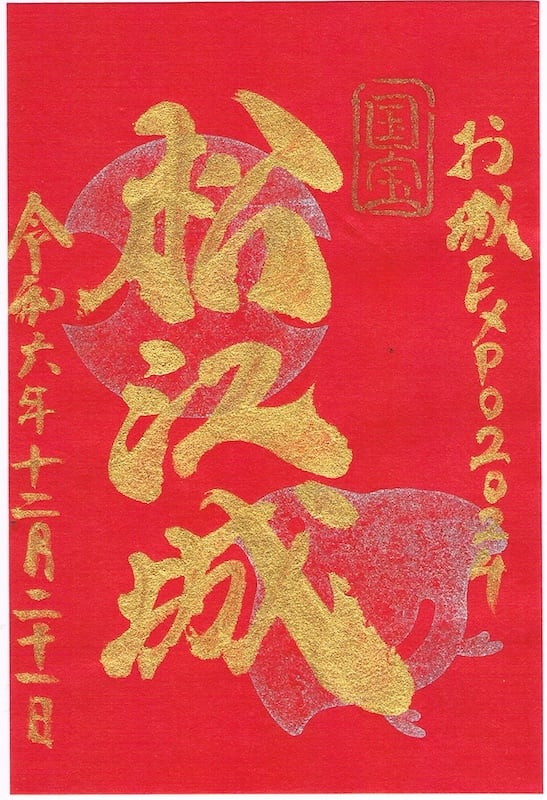 お城EXPO2024
国宝
松江城
令和六年十二月二十一日